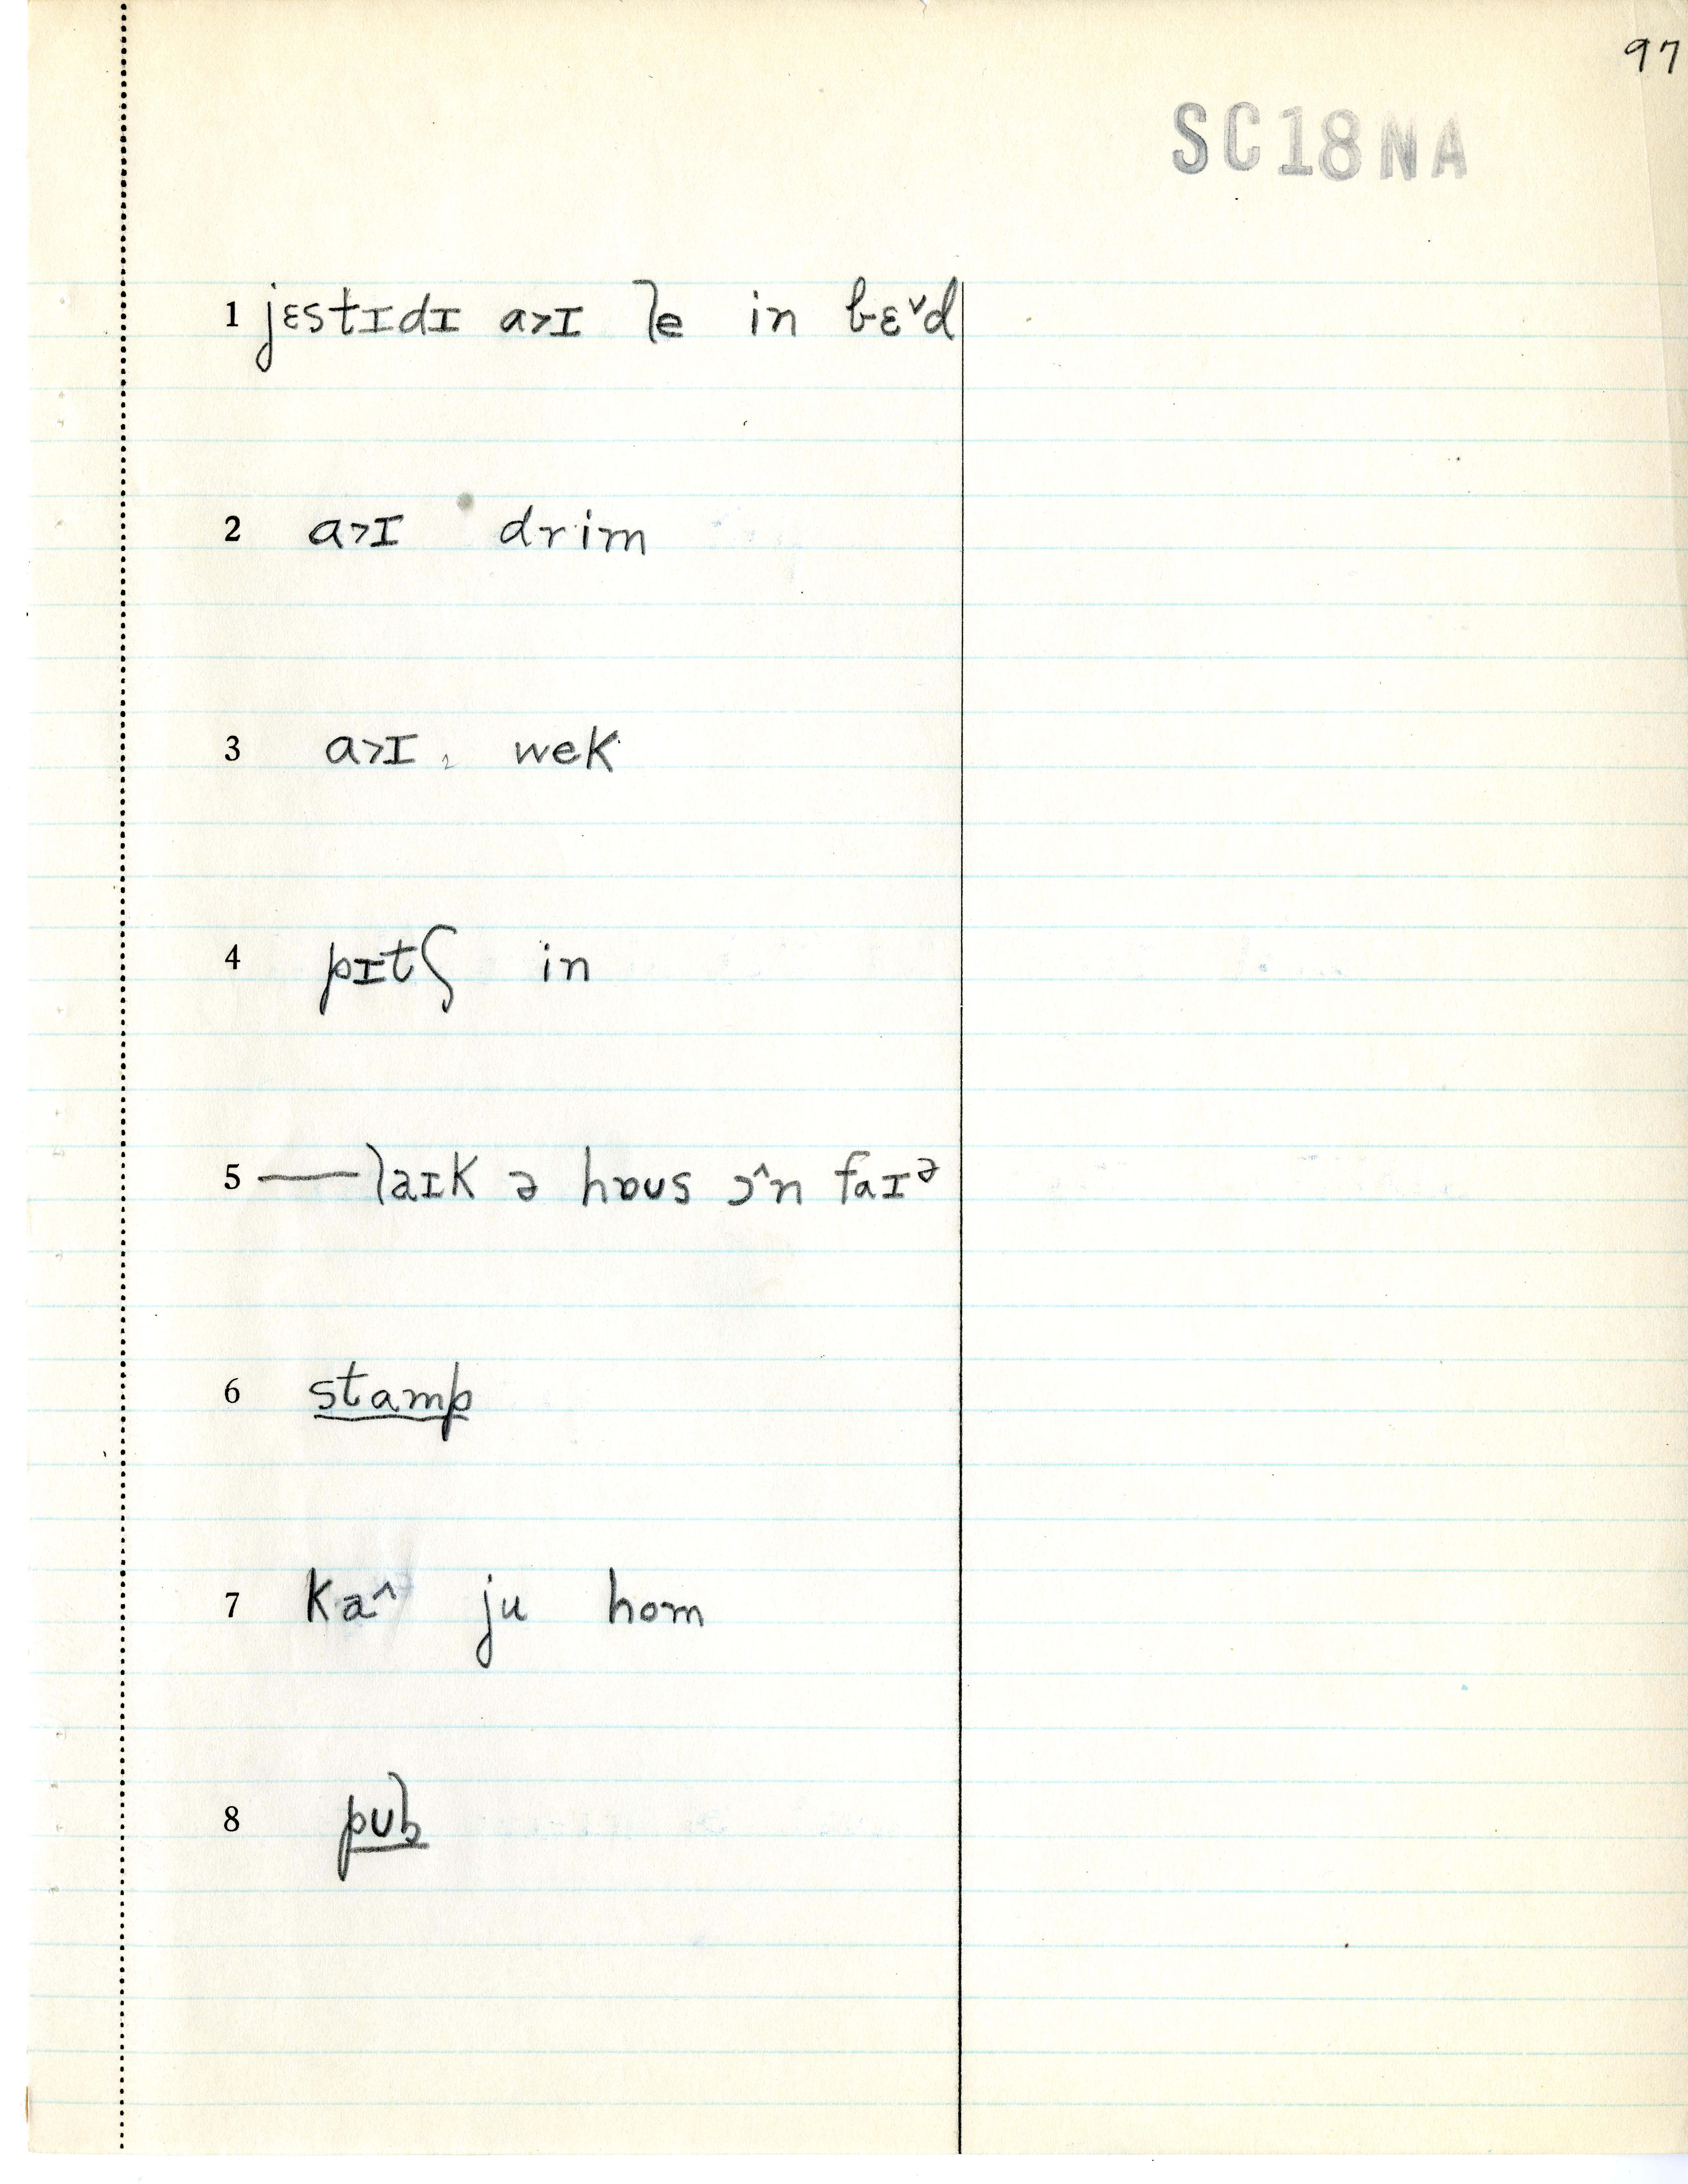 97
SC18NA
1 jɛstɪdɪ a>ɪ le in bɛ˅d
2 a>ɪ drim
3 a>ɪ wek
4 pɪtʃ in
5 —— laɪk ə hɒʊs ɔ^n faɪᵊ
6 stamp
7 ka^ ju hom
8 pʊb